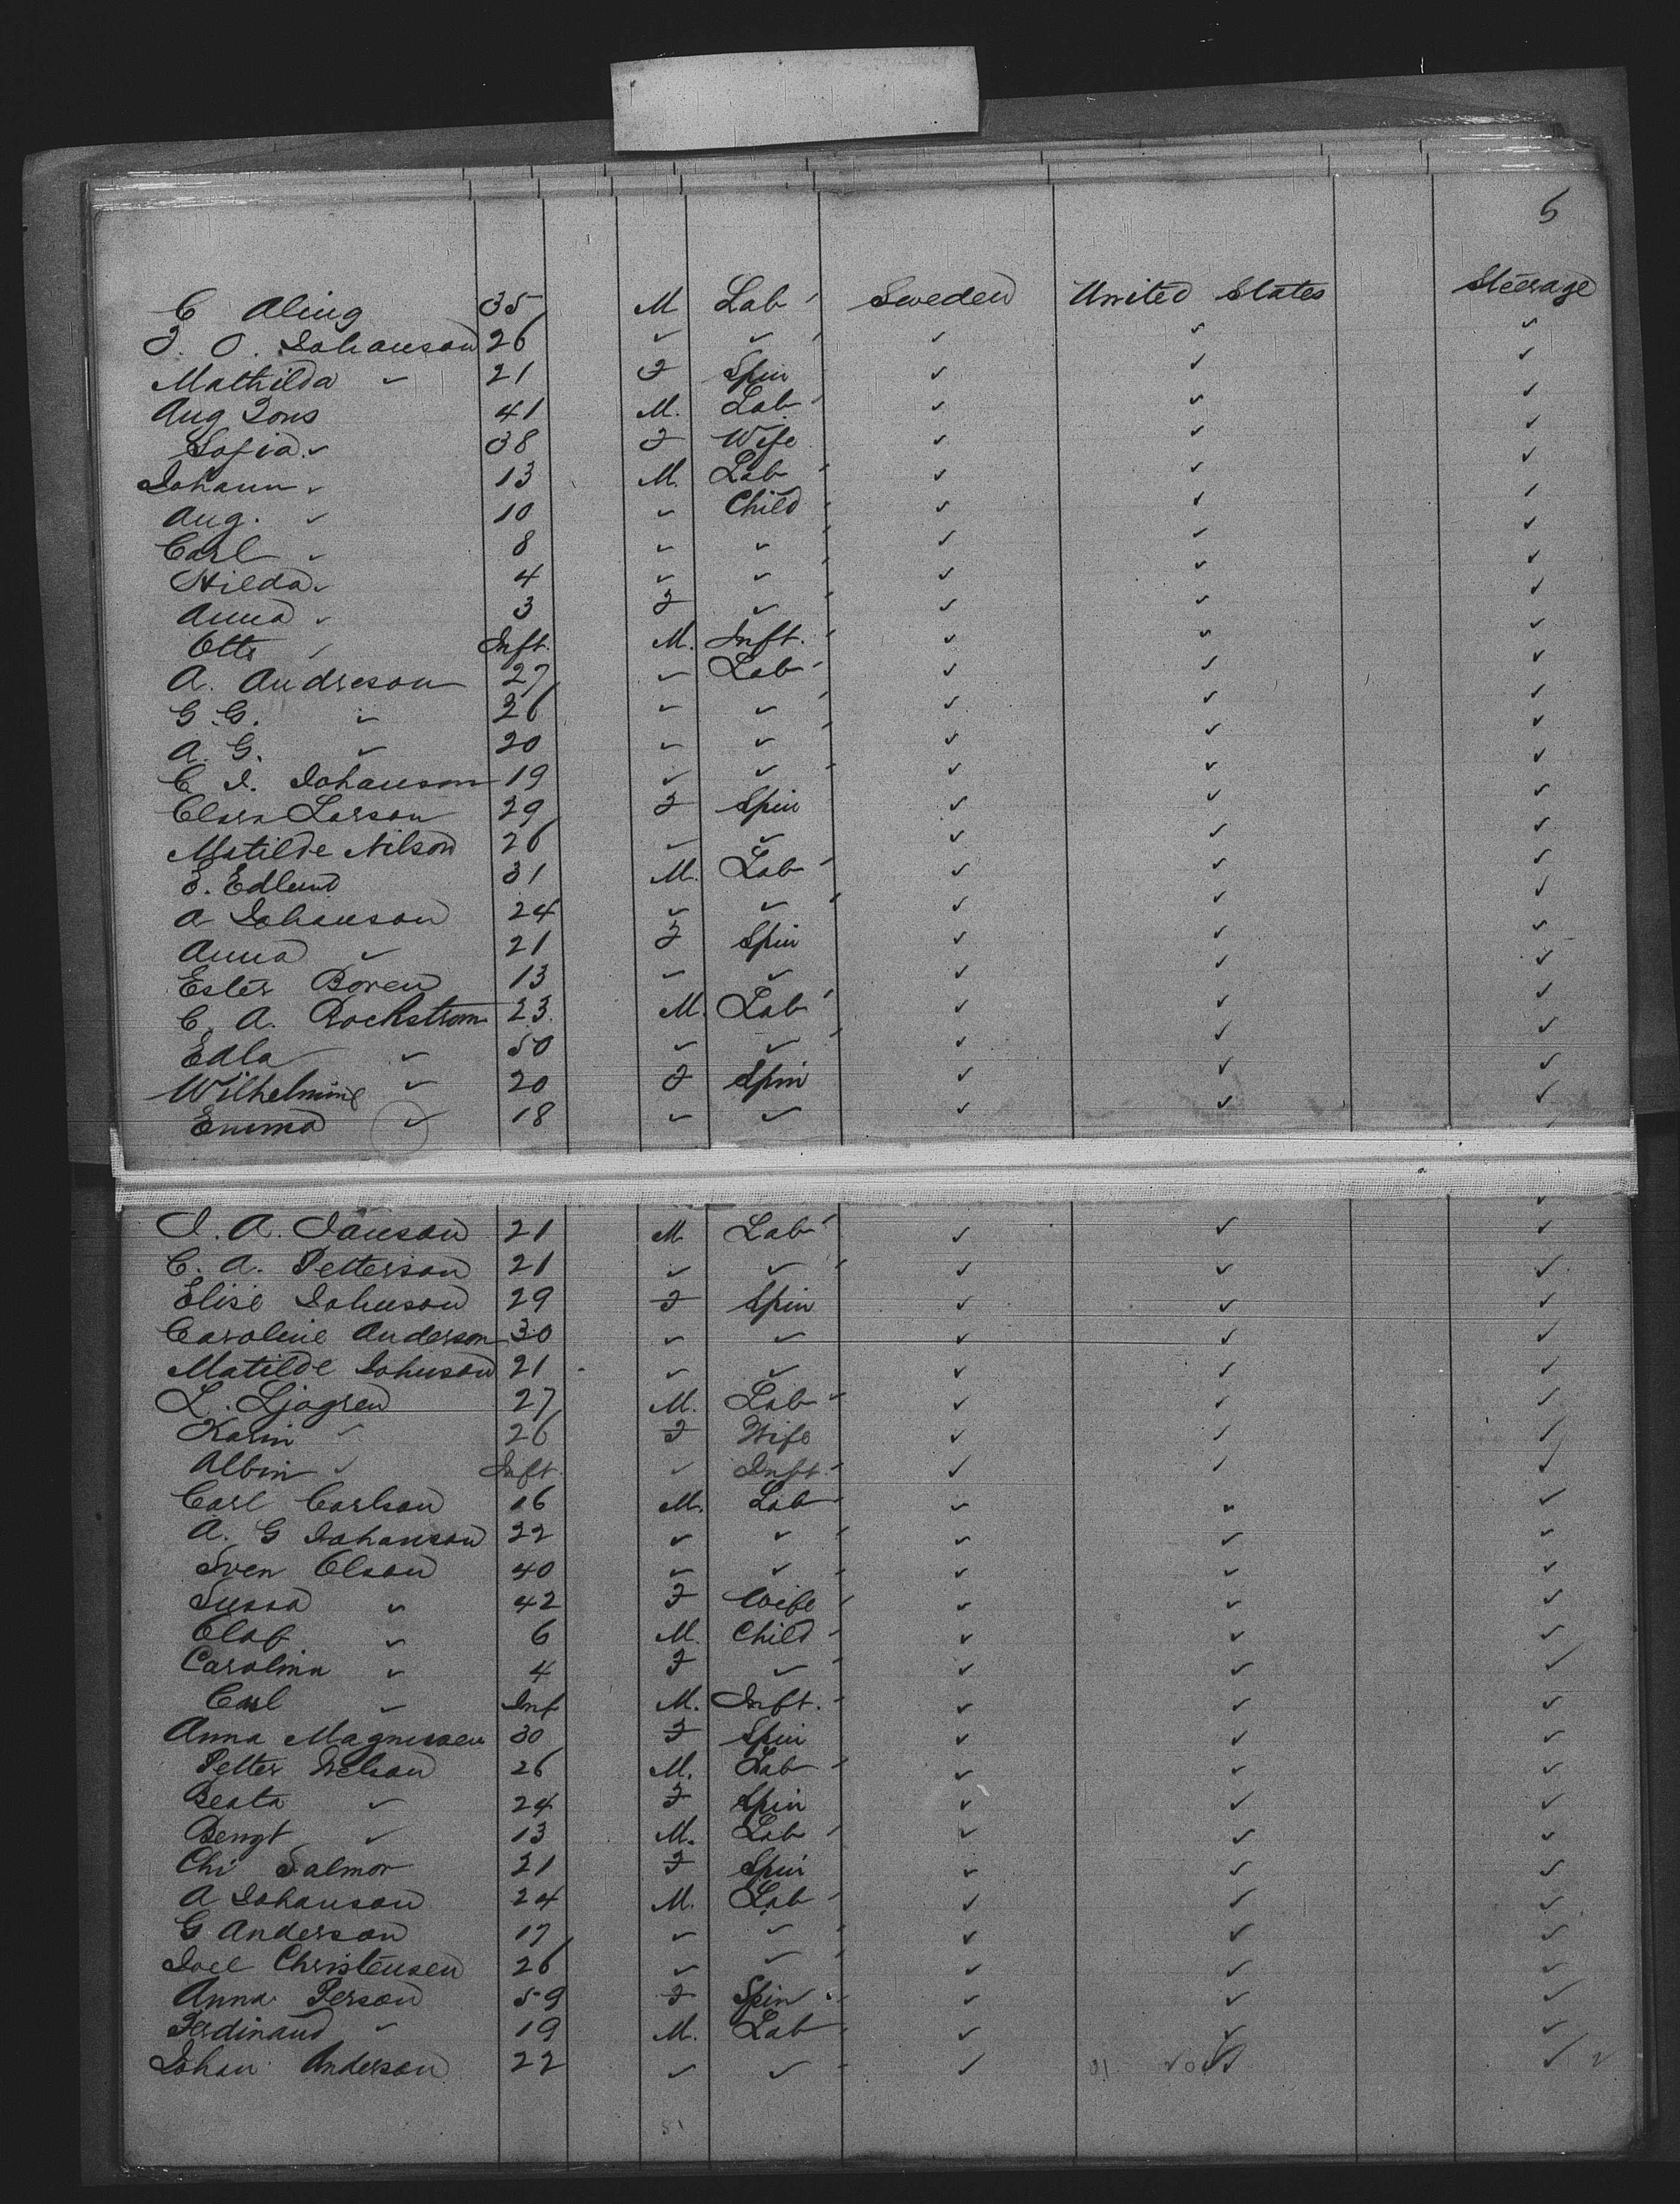 5
C Aling 35 M Lab Sweden United States Steerage
J. O. Johanson 26 " " " " "
Mathilda " 21 F Spin " " "
Aug Jons 41 M. Lab " " "
Sofia " 38 F Wife " " "
Johann " 13 M. Lab " " "
Aug. " 10 " Child " " "
Carl " 8 " " " " "
Hilda " 4 " " " " "
Anna " 3 F " " " "
Otto " Inft. M. Inft. " " "
A. Andreson 27 " Lab " " "
G. G. " 26 " " " " "
A. G. " 20 " " " " "
C. J. Johanson 19 " " " " "
Clara Larson 29 F Spin " " "
Matilde Nilson 26 " " " " "
E. Edlund 31 M. Lab " " "
A Johanson 24 " " " " "
Anna " 21 F Spin " " "
Ester Boren 13 " " " " "
C. A. Rockstrom 23 M. Lab " " "
Edla " 50 " " " " "
Wilhelmine " 20 F Spin " " "
Emma " 18 " " " " "
J. A. Janson 21 M Lab " " "
C. A. Petterson 21 " " " " "
Elise Johnson 29 F Spin " " "
Caroline Anderson 30 " " " " "
Matilde Johnson 21 " " " " "
L. Ljogren 27 M. Lab " " "
Karin " 26 F Wife " " "
Albin " Inft " Inft. " " "
Carl Carlson 16 M. Lab " " "
A. G Johanson 22 " " " " "
Sven Olson 40 " " " " "
Sussa " 42 F Wife " " "
Olof " 6 M. Child " " "
Carolina " 4 F " " " "
Carl " Inf M. Inft. " " "
Anna Magnussen 30 F Spin " " "
Petter Nelson 26 M. Lab " " "
Beata " 24 F Spin " " "
Bengt " 13 M. Lab " " "
Chi Salmor 21 F Spin " " "
A Johanson 24 M. Lab " " "
G Anderson 17 " " " " "
Joel Christensen 26 " " " " "
Anna Person 59 F Spin " " "
Ferdinand " 19 M. Lab " " "
Johan Anderson 22 " " " " "